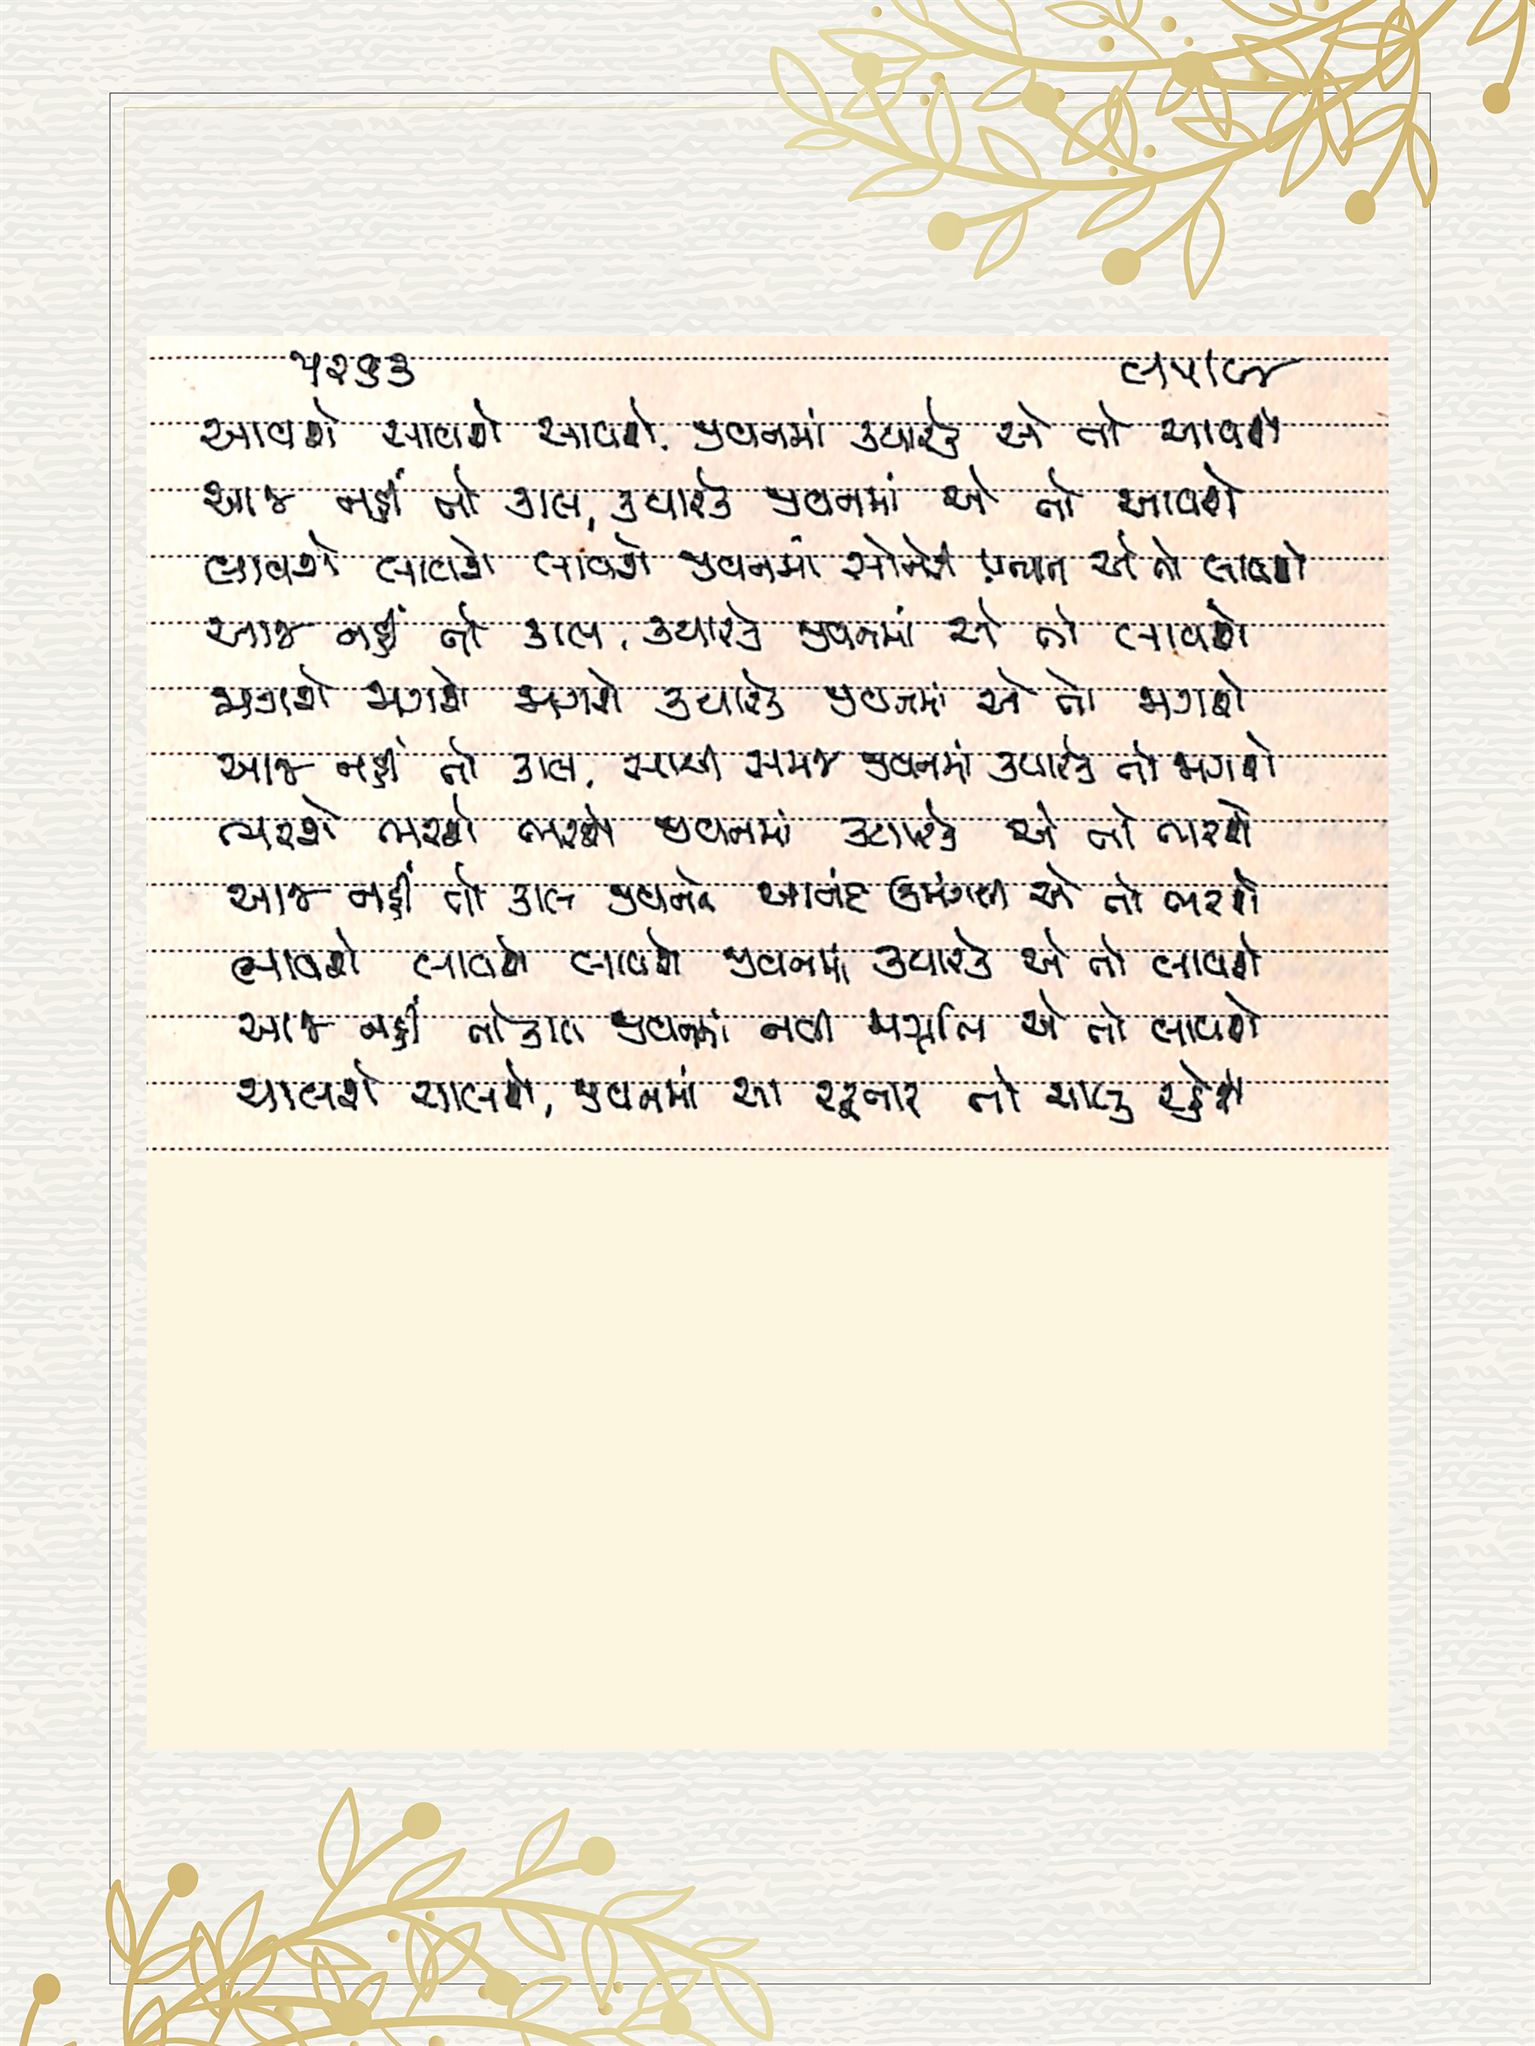 આવશે આવશે આવશે. જીવનમાં ક્યારેક એ તો આવશે
આજ નહીં તો કાલ, ક્યારેક જીવનમાં એ તો આવશે
લાવશે લાવશે લાવશે જીવનમાં સોનેરી પ્રભાત એ તો લાવશે
આજ નહીં તો કાલ, ક્યારેક જીવનમાં એ તો લાવશે
મળશે મળશે મળશે ક્યારેક જીવનમાં એ તો મળશે
આજ નહીં તો કાલ, સાચી સમજ જીવનમાં ક્યારેક તો મળશે
ભરશે ભરશે ભરશે જીવનમાં ક્યારેક એ તો ભરશે
આજ નહીં તો કાલ જીવનને આનંદ ઉમંગથી એ તો ભરશે
લાવશે લાવશે લાવશે જીવનમાં ક્યારેક એ તો લાવશે
આજ નહીં તો કાલ જીવનમાં નવી એ તો લાવશે
ચાલશે ચાલશે, જીવનમાં આ રફ્તાર તો ચાલુ રહેશે